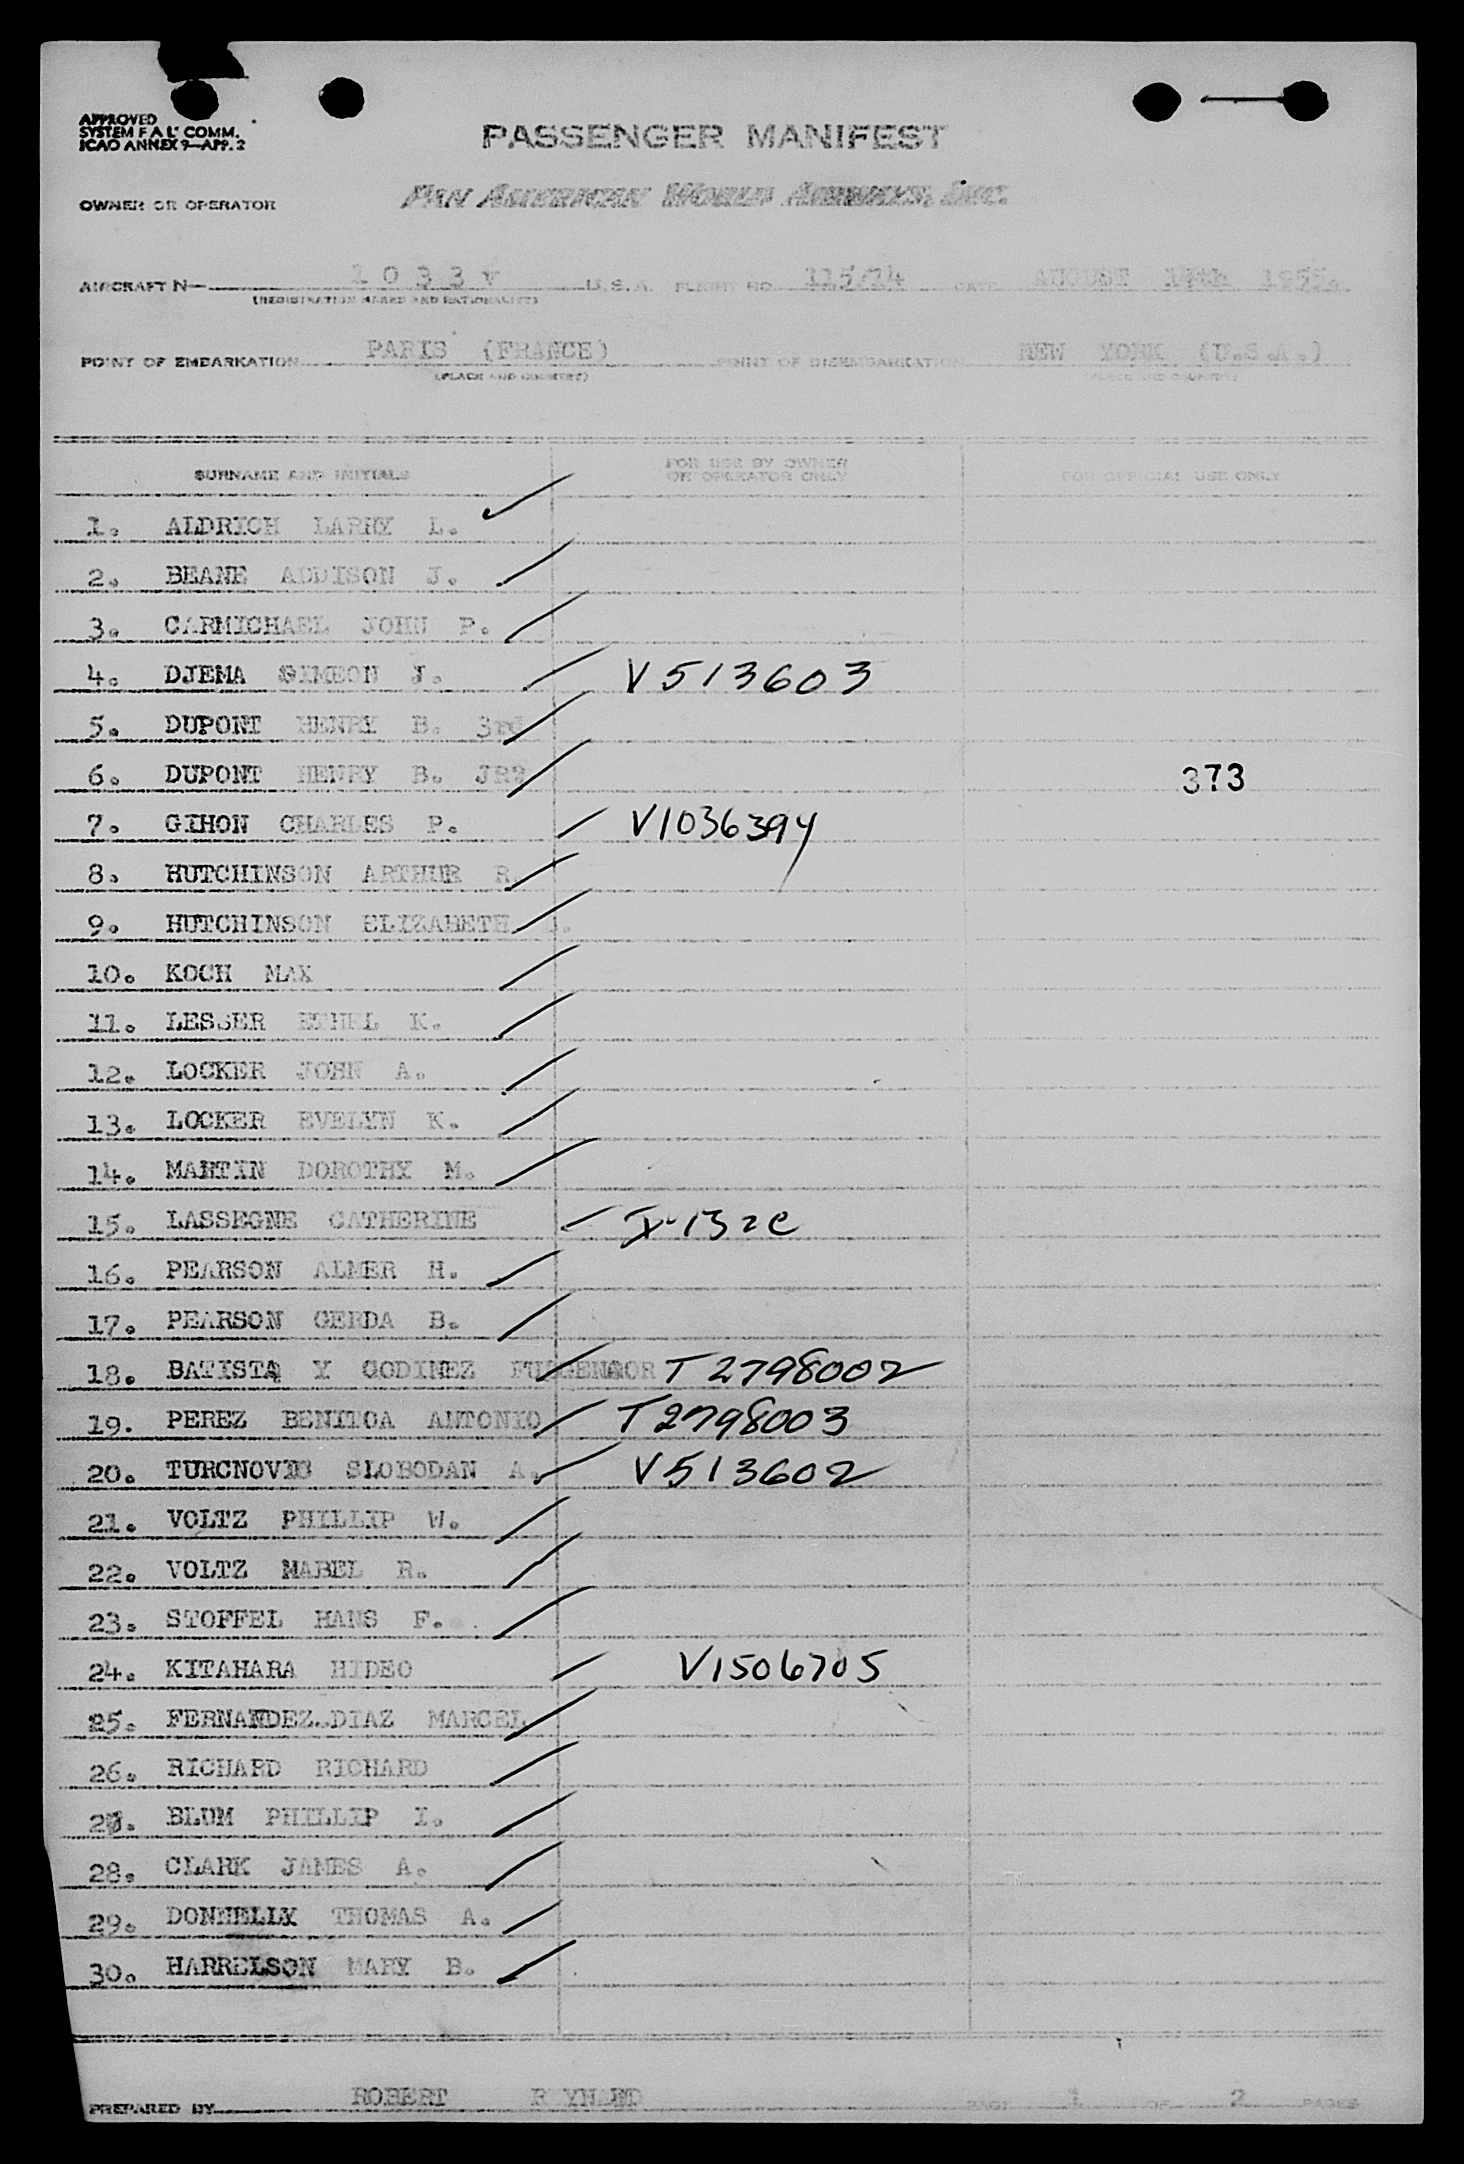 APPROVED
SYSTEM F A L' COMM.
ICAO ANNEX 9—APP. 2
PASSENGER MANIFEST
OWNER OR OPERATOR PAN AMERICAN WORLD AIRWAYS, INC.
AIRCRAFT N— 1 0 3 3 V U.S.A. FLIGHT NO. 115/14 DATE AUGUST 14th 1955.
(REGISTRATION MARKS AND NATIONALITY)
POINT OF EMBARKATION PARIS (FRANCE) POINT OF DISEMBARKATION NEW YORK (U.S.A.)
(PLACE AND COUNTRY) (PLACE AND COUNTRY)
SURNAME AND INITIALS FOR USE BY OWNER OR OPERATOR ONLY FOR OFFICIAL USE ONLY
1. ALDRICH LARRY L.
2. BEANE ADDISON J.
3. CARMICHAEL JOHN P.
4. DJEMA SIMEON J. V513603
5. DUPONT HENRY B. 3rd
6. DUPONT HENRY B. JR. 373
7. GIHON CHARLES P. V1036394
8. HUTCHINSON ARTHUR R.
9. HUTCHINSON ELIZABETH
10. KOCH MAX
11. LESSER ETHEL K.
12. LOCKER JOHN A.
13. LOCKER EVELYN K.
14. MARTIN DOROTHY M.
15. LASSEGNE CATHERINE I-132c
16. PEARSON ALMER H.
17. PEARSON GERDA B.
18. BATISTA Y GODINEZ T2798002
19. PEREZ BENITOA ANTONIO T2798003
20. TURCNOVIC SLOBODAN A. V513602
21. VOLTZ PHILLIP W.
22. VOLTZ MABEL R.
23. STOFFEL HANS F.
24. KITAHARA HIDEO V1506705
25. FERNANDEZ.DIAZ MARCEL
26. RICHARD RICHARD
27. BLUM PHILLIP I.
28. CLARK JAMES A.
29. DONNELLY THOMAS A.
30. HARRELSON MARY B.
PREPARED BY ROBERT PAGE 1 OF 2 PAGES